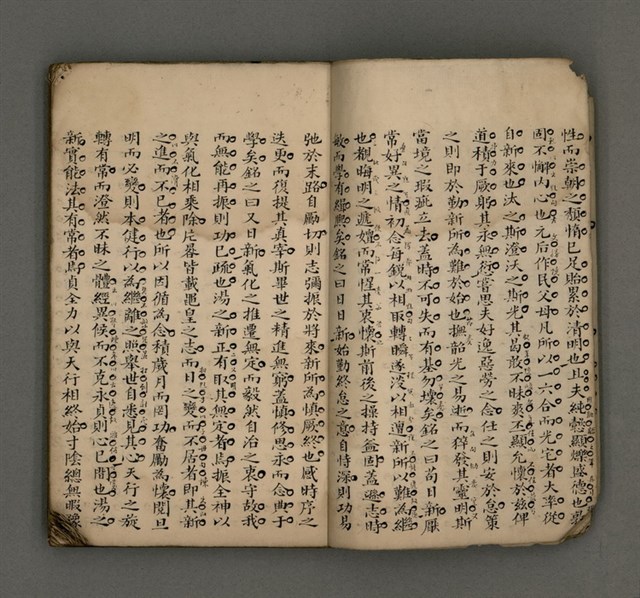 性而崇朝之頹惰已足貽累於清明也且夫純懿顯爍盛德也要
固不懈內心也元后作民父母凡所以一六合而光宅者大率從
自新來也汰之斯澄沃之斯光其曷敢不昧爽丕顯允懷於茲俾
道積于厥躬其永無愆當思夫好逸惡勞之念任之則安於怠策
之則即於勤新所為難於始也撫韶光之易逝而猝發其靈明斯
當境之瑕疵立去蓋時不可失而有基勿壞矣銘之曰苟日新厭
常好異之情初念每銳以相取轉瞬遂淡以相遭新所以難為繼
也觀晦明之遞嬗而常惺其衷懷斯前後之操持益固蓋遜志時
敏而學有緝熙矣銘之曰日日新始勤終怠之意自恃深則功易
弛於末路自勵切則志彌振於將來新所為慎厥終也感時序之
迭更而復提其真宰斯畢世之精進無窮蓋慎修思永而念典于
學矣銘之曰又日新氣化之推遷無定而毅然自治之衷守故我
而無能再振則功已疏也湯之新正有取其無定者焉振全神以
與氣化相乘除片晷皆載黽皇之志而日之變而不居者即其新
之進而不已者也所以因循為念積歲月而罔功奮勵為懷閱旦
明而必變則本健行以為繼離之照舉世自悉見其心天行之旋
轉有常而澄然不昧之體經異候而不克永貞則心已間也湯之
新實能法其有常者焉貞全力以與天行相終始寸陰總無暇豫